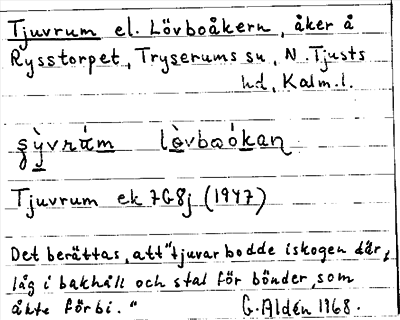 Tjuvrum el. Lövboåkern, åker å
Rysstorpet, Tryserums sn, N. Tjusts
hd, Kalm.l.
lòvbaókan
Tjuvrum ek 7G8j (1947)
Det berättas, att "tjuvar bodde i skogen där,
låg i bakhåll och stal för bönder, som
åkte förbi."
G. Aldén 1968.